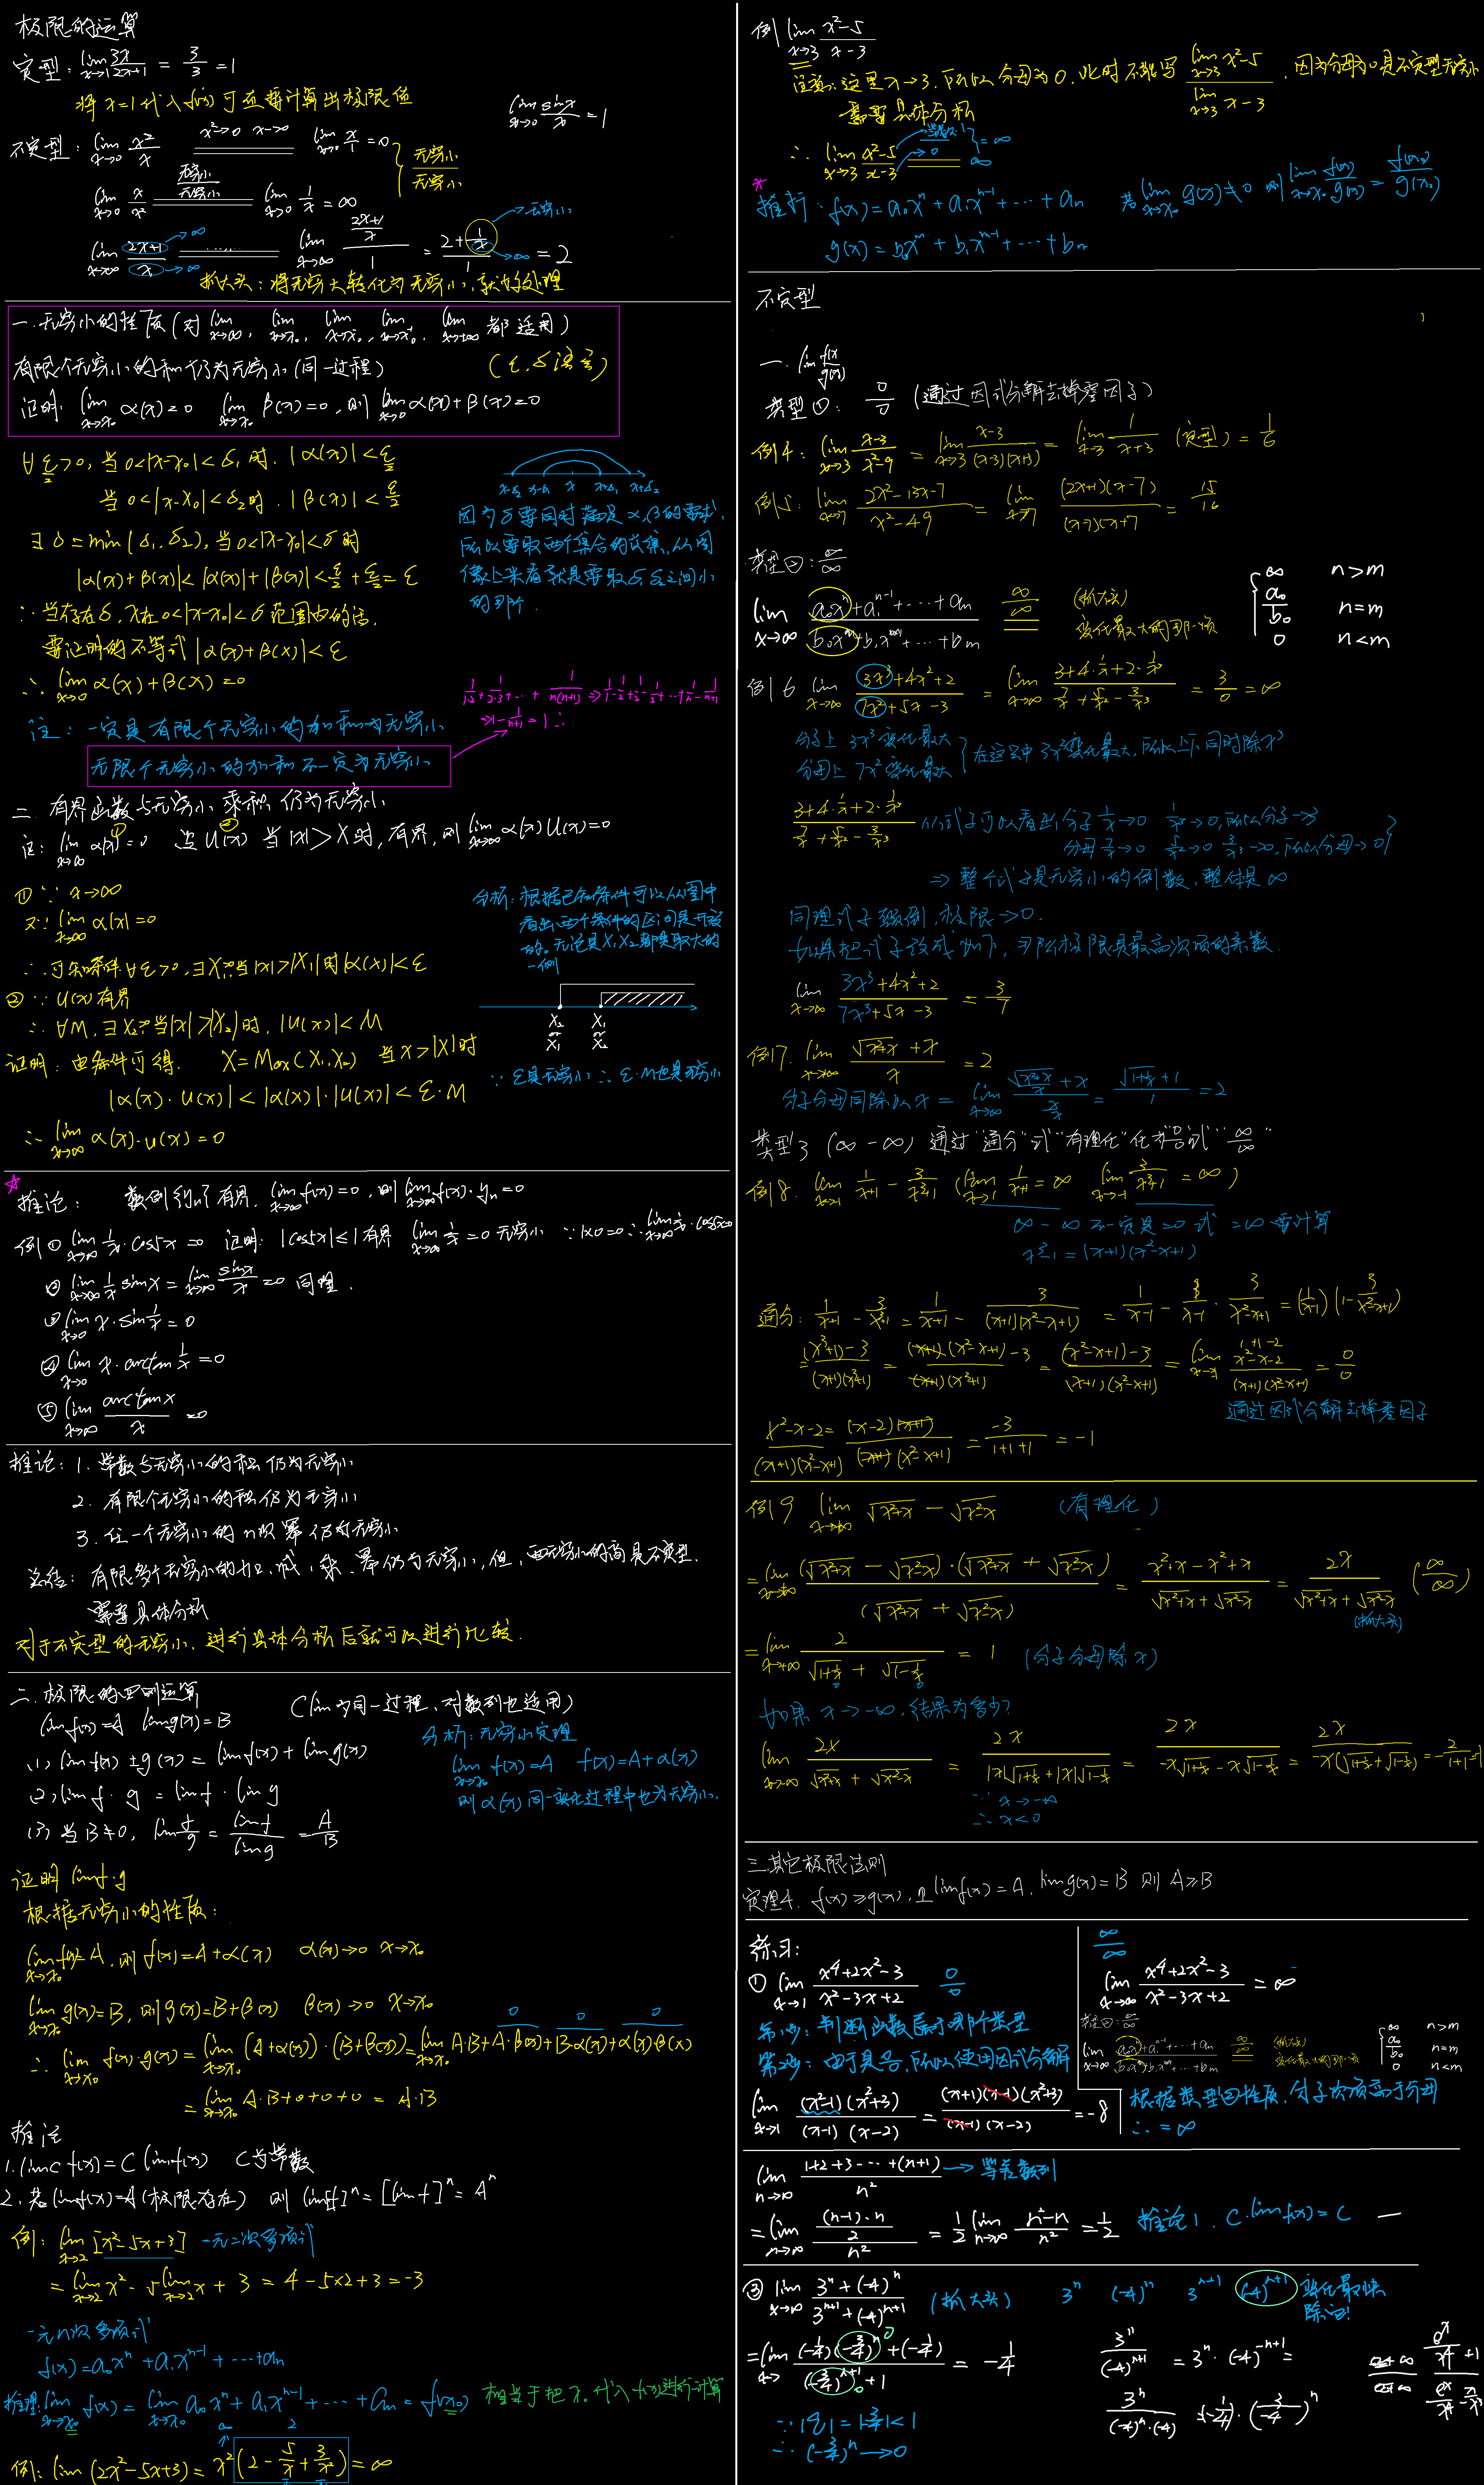 极限的运算
定型: lim x→1 3x/2x+1 = 3/3 = 1
将 x=1 代入 f(x) 可直接计算出极限值
lim x→0 sinx/x = 1
不定型: lim x→0 x²/x x²→0 x→0 lim x→0 x/1 = 0
无穷小/无穷小
lim x→0 x/x² 无穷小/无穷小 lim x→0 1/x = ∞
lim x→∞ 2x+1/x →∞ →∞ ...... lim x→∞ (2x+1/x)/1 = (2+1/x)/1 = 2
→无穷小
→∞
抓大头: 将无穷大转化为无穷小, 就好处理
一.无穷小的性质(对 lim x→∞, lim x→x₀, lim x→x₀⁻, lim x→x₀⁺, lim x→+∞ 都适用)
有限个无穷小的和仍为无穷小(同一过程) (ε,δ语言)
证明: lim x→x₀ α(x)=0 lim x→x₀ β(x)=0, 则 lim x→0 α(x)+β(x)=0
∀ε/2>0, 当 0<|x-x₀|<δ₁ 时, |α(x)|<ε/2
当 0<|x-x₀|<δ₂ 时, |β(x)|<ε/2
∃δ=min(δ₁,δ₂), 当 0<|x-x₀|<δ 时
|α(x)+β(x)|<|α(x)|+|β(x)|<ε/2+ε/2=ε
∴当存在δ, x在 0<|x-x₀|<δ 范围内的话,
要证明的不等式 |α(x)+β(x)|<ε
∴ lim x→0 α(x)+β(x)=0
x-δ₂ x-δ₁ x x+δ₁ x+δ₂
因为δ要同时满足α,β的要求,
所以要取两个集合的交集, 从图
像上来看就是要取δ₁ δ₂之间小
的那个.
注: 一定是有限个无穷小的加和为无穷小
无限个无穷小的加和不一定为无穷小
1/1·2+1/2·3+...+1/n(n+1) ⇒ 1-1/2+1/2-1/3+...+1/n-1/n+1
⇒1-1/n+1 = 1
二 有界函数与无穷小乘积仍为无穷小
证: lim x→∞ α(x)=0 ① 设 U(x) ② 当 |x|>X 时, 有界, 则 lim x→∞ α(x)U(x)=0
① ∵ x→∞
又∵ lim x→∞ α(x)=0
∴ 可知条件 ∀ε>0, ∃X₁当|x|>|X₁|时 |α(x)|<ε
② ∵ U(x)有界
∴ ∀M, ∃X₂当|x|>|X₂|时, |U(x)|<M
分析: 根据已知条件可以从图中
看出两个条件的区间是开放
的。无论是X₁X₂都是取大的
一侧
X₂ X₁
or or
X₁ X₂
证明: 由条件可得. X=Max(X₁,X₂) 当 x>|X| 时
|α(x)·U(x)|<|α(x)|·|U(x)|<ε·M
∵ ε是无穷小 ∴ ε·M也是无穷小
∴ lim x→∞ α(x)·u(x)=0
推论: 数列{yn}有界, lim x→∞ f(x)=0, 则 lim x→∞ f(x)·yn=0
例① lim x→∞ 1/x·cos5x=0 证明: |cos5x|≤1有界 lim x→∞ 1/x=0 无穷小 ∵1×0=0 ∴ lim x→∞ 1/x·cos5x=0
② lim x→∞ 1/x sinx = lim x→∞ sinx/x=0 同理.
③ lim x→0 x·sin1/x=0
④ lim x→0 x·arctan1/x=0
⑤ lim x→∞ arctanx/x=0
推论: 1. 常数与无穷小的积仍为无穷小
2. 有限个无穷小的积仍为无穷小
3. 任一个无穷小的n次幂仍为无穷小
总结: 有限多个无穷小的加、减、乘、幂仍为无穷小, 但, 两无穷小的商是不定型.
需要具体分析
对于不定型的无穷小, 进行具体分析后就可以进行比较.
二. 极限的四则运算 (lim为同一过程, 对数列也适用)
lim f(x)=A lim g(x)=B
(1) lim f(x)±g(x) = lim f(x)+lim g(x)
(2) lim f·g = lim f·lim g
(3) 当B≠0, lim f/g = lim f/lim g = A/B
分析: 无穷小定理
lim x→x₀ f(x)=A f(x)=A+α(x)
则α(x)同一变化过程中也为无穷小.
证明 lim f·g
根据无穷小的性质:
lim x→x₀ f(x)=A, 则 f(x)=A+α(x) α(x)→0 x→x₀
lim x→x₀ g(x)=B, 则 g(x)=B+β(x) β(x)→0 x→x₀
0 0 0
∴ lim x→x₀ f(x)·g(x) = lim x→x₀ (A+α(x))·(B+β(x)) = lim x→x₀ A·B+A·β(x)+B·α(x)+α(x)·β(x)
= lim x→x₀ A·B+0+0+0 = A·B
推论
1. lim C f(x) = C lim f(x) C为常数
2. 若 lim f(x)=A(极限存在) 则 lim [f]ⁿ = [lim f]ⁿ = Aⁿ
例: lim x→2 [x²-5x+3] 一元二次多项式
= lim x→2 x² - 5 lim x→2 x + 3 = 4-5×2+3=-3
一元n次多项式
f(x)=a₀xⁿ+a₁xⁿ⁻¹+...+an
推理: lim x→x₀ f(x) = lim x→x₀ a₀xⁿ+a₁xⁿ⁻¹+...+an = f(x₀) 相当于把x₀代入f(x)进行计算
∞ 2
例: lim (2x²-5x+3) = x²(2-5/x+3/x²)=∞
例 lim x→3 x²-5/x-3
注意: 这里x→3, 所以分母为0, 此时不能写 lim x→3 x²-5 / lim x→3 x-3, 因为分母为0是不定型无穷小
需要具体分析
∴ lim x→3 x²-5/x-3 →常数 →0 = ∞ ∞
推行: f(x)=a₀xⁿ+a₁xⁿ⁻¹+...+an 若 lim x→x₀ g(x)≠0 则 lim x→x₀ f(x)/g(x) = f(x₀)/g(x₀)
g(x)=b₀xᵐ+b₁xᵐ⁻¹+...+bm
不定型
一. lim f(x)/g(x)
类型①: 0/0 (通过因式分解去掉零因子)
例4: lim x→3 x-3/x²-9 = lim x→3 x-3/(x-3)(x+3) = lim x→3 1/x+3 (定型) = 1/6
例5: lim x→7 2x²-13x-7/x²-49 = lim x→7 (2x+1)(x-7)/(x-7)(x+7) = 15/14
类型②: ∞/∞
lim x→∞ a₀xⁿ+a₁ⁿ⁻¹+...+an/b₀xᵐ+b₁xᵐ⁻¹+...+bm ∞/∞ (抓大头) 变化最大的那一项
∞ n>m
a₀/b₀ n=m
0 n<m
例6 lim x→∞ 3x³+4x²+2/7x²+5x-3 = lim x→∞ 3+4·1/x+2·1/x³ / 7/x+5/x²-3/x³ = 3/0 = ∞
分子上 3x³变化最大
分母上 7x²变化最大
在这之中3x³变化最大, 所以上下同时除x³
3+4·1/x+2·1/x³ / 7/x+5/x²-3/x³ 从式子可以看出分子 1/x→0 1/x³→0, 所以分子→3
分母 7/x→0 5/x²→0 3/x³→0, 所以分母→0
⇒ 整个式子是无穷小的倒数, 整体是∞
同理式子颠倒, 极限→0.
如果把式子改成如下, 那么极限是最高次项的系数.
lim x→∞ 3x³+4x²+2/7x³+5x-3 = 3/7
例7. lim x→∞ √x²+x+x/x = 2
分子分母同除以x = lim x→∞ √x²+x/x+x / x/x = √1+1/x+1/1 = 2
类型3 (∞-∞) 通过"通分"或"有理化"化为"0/0"或"∞/∞"
例8. lim x→-1 1/x+1 - 3/x³+1 (lim x→-1 1/x+1=∞ lim x→-1 3/x³+1=∞)
∞-∞ 不一定是=0 或 =∞ 要计算
x³+1=(x+1)(x²-x+1)
通分: 1/x+1 - 3/x³+1 = 1/x+1 - 3/(x+1)(x²-x+1) = 1/x-1 - 1/x-1·3/x²-x+1 = (1/x-1)(1-3/x²-x+1)
= (x³+1)-3/(x+1)(x³+1) = (x+1)(x²-x+1)-3/(x+1)(x³+1) = (x²-x+1)-3/(x+1)(x²-x+1) = lim x→-1 x²-x-2/(x+1)(x²-x+1) = 0/0
通过因式分解去掉零因子
x²-x-2/(x+1)(x²-x+1) = (x-2)(x+1)/(x+1)(x²-x+1) = -3/1+1+1 = -1
例9 lim x→+∞ √x²+x - √x²-x (有理化)
= lim x→+∞ (√x²+x - √x²-x)·(√x²+x + √x²-x)/(√x²+x + √x²-x) = x²+x-x²+x/√x²+x + √x²-x = 2x/√x²+x + √x²-x (∞/∞)
(抓大头)
= lim x→+∞ 2/√1+1/x + √1-1/x = 1 (分子分母除x)
如果 x→-∞, 结果为多少?
lim x→-∞ 2x/√x²+x + √x²-x = 2x/|x|√1+1/x+|x|√1-1/x = 2x/-x√1+1/x-x√1-1/x = 2x/-x(√1+1/x+√1-1/x) = -2/1+1=-1
∵ x→-∞
∴ x<0
三.其它极限法则
定理4. f(x)≥g(x), 且 lim f(x)=A, lim g(x)=B 则 A≥B
练习:
① lim x→1 x⁴+2x²-3/x²-3x+2 0/0
第1步: 判断函数属于哪个类型
第2步: 由于是0/0, 所以使用因式分解
lim x→1 (x²-1)(x²+3)/(x-1)(x-2) = (x+1)(x-1)(x²+3)/(x-1)(x-2) = -8
∞/∞
lim x→∞ x⁴+2x²-3/x²-3x+2 = ∞
类型②: ∞/∞
lim x→∞ a₀xⁿ+a₁ⁿ⁻¹+...+an/b₀xᵐ+b₁xᵐ⁻¹+...+bm ∞/∞ (抓大头) 变化最大的那一项
∞ n>m
a₀/b₀ n=m
0 n<m
根据类型②性质, 分子次项高于分母
∴ = ∞
lim n→∞ 1+2+3+...+(n+1)/n² → 等差数列
= lim n→∞ (n-1)·n/2 / n² = 1/2 lim n→∞ n²-n/n² = 1/2 推论1. C·lim f(x)=C
③ lim x→∞ 3ⁿ+(-4)ⁿ/3ⁿ⁺¹+(-4)ⁿ⁺¹ (抓大头) 3ⁿ (-4)ⁿ 3ⁿ⁺¹ (-4)ⁿ⁺¹ 变化最快
除它!
= lim (-1/4)(-3/4)ⁿ+(-1/4)/(-3/4)ⁿ⁺¹+1 = -1/4
3ⁿ/(-4)ⁿ⁺¹ = 3ⁿ·(-4)⁻ⁿ⁺¹ =
3ⁿ/(-4)ⁿ·(-4) = (-1/4)·(3/-4)ⁿ
∵ |q|=|-3/4|<1
∴ (-3/4)ⁿ→0